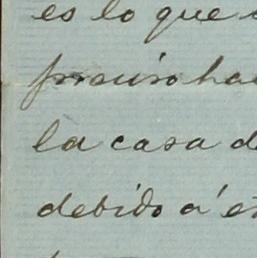 es lo que
preciso ha
la casa d
debido a' e